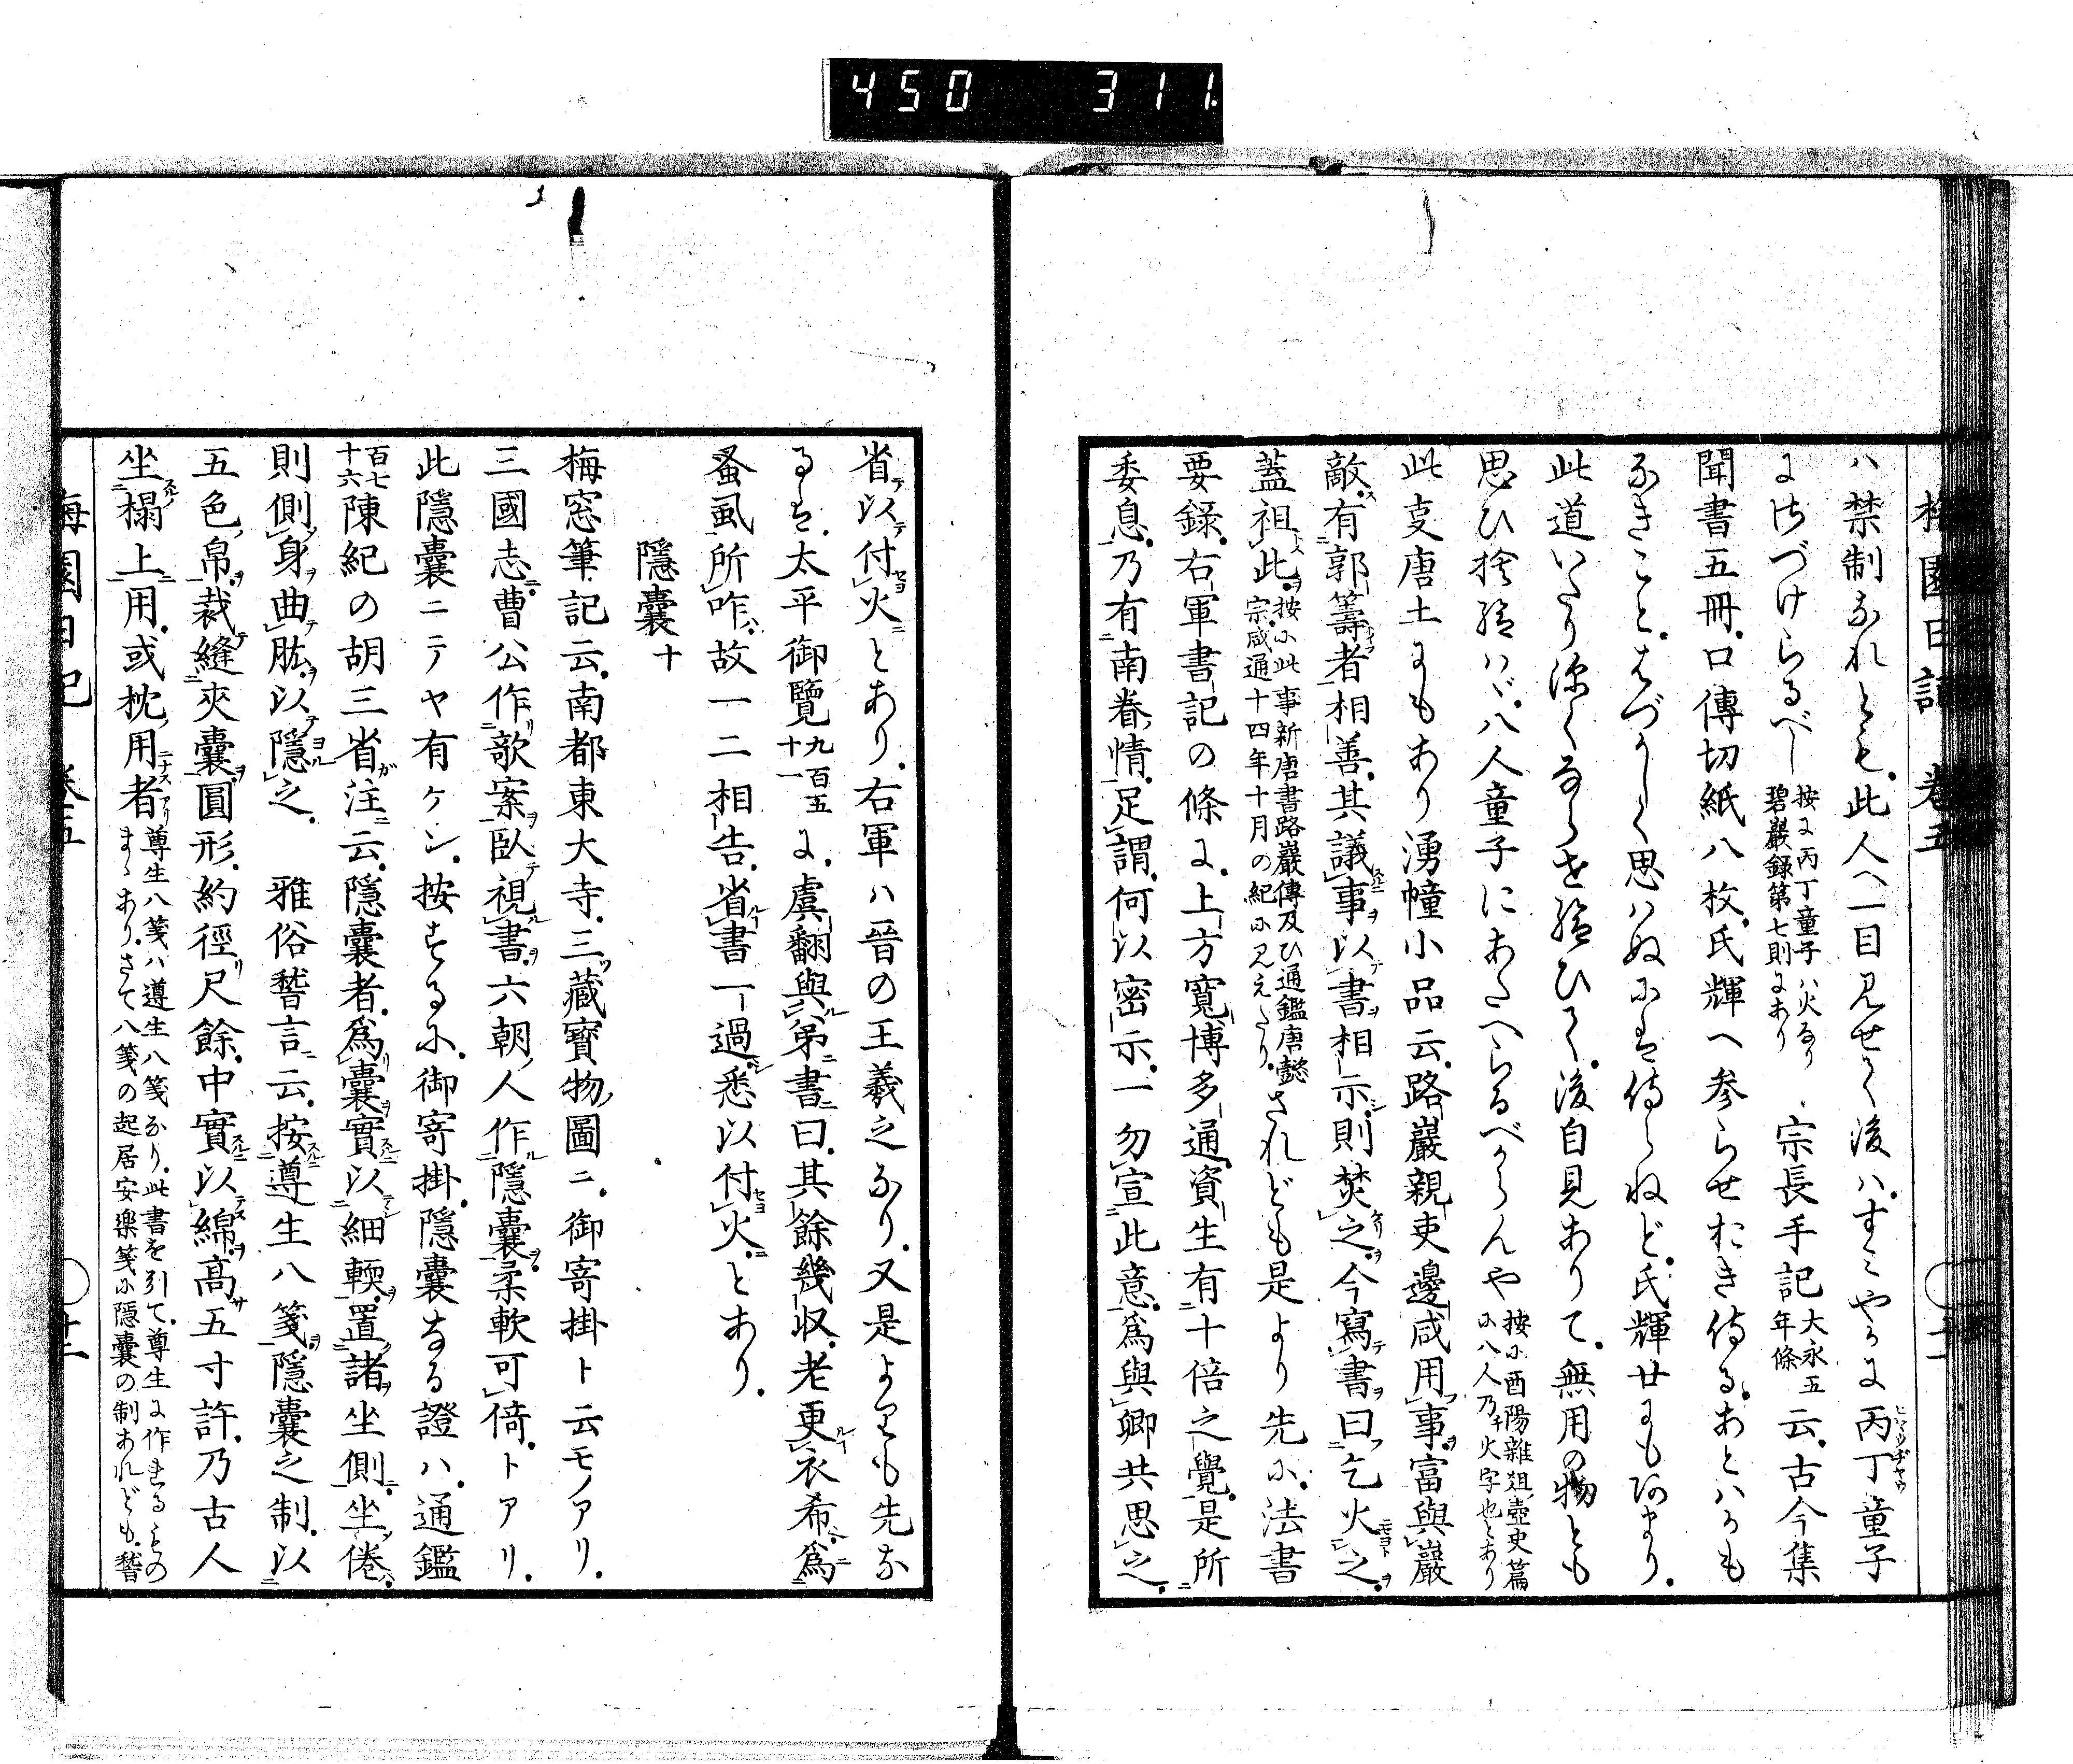 450 311
梅園日記 卷五
ハ禁制なれとも。此人へ一目見せて後ハ。すミやかに丙丁童子
にさづけらるべし 按に丙丁童子ハ火なり 碧巖録第七則にあり 宗長手記 大永五年條 云。古今集
聞書五冊。口傳切紙八枚。氏輝へ参らせおき侍る。あとハかも
なきこと。はづかしく思ハぬにハ侍らねど。氏輝廿にも
此道いたり深くならせ給ひて。後自見ありて。無用の物とも
思ひ捨給ハヾ。八人童子にあたへらるべからんや 按に酉陽雜俎壺史篇 に八人乃チ火字也とあり
此支唐土にもあり湧幢小品云。路巖親吏邊咸用事。富與巖
敵。有郭籌者相善。其議事以書相示。則焚之。今寫書曰乞火之。
蓋祖此。按に此事新唐書路巖傳及ひ通鑑唐懿 宗咸通十四年十月の紀に見えたり。されども是より先に。法書
要録。右軍書記の條に。上方寬博多通。資生有十倍之覺。是所
委息。乃有南眷情。足謂何以密示。一勿宣此意。爲與卿共思之。
省以付火とあり。右軍ハ晉の王羲之なり。又是よりも先な
るは。太平御覽 九百五十一 に。虞翻與弟書曰。其餘幾収。老更衣希爲
蚤虱所咋。故一二相告。省書一過。悉以付火。とあり。
隱囊十
梅窓筆記云。南都東大寺。三藏寶物圖ニ。御寄掛ト云モノアリ。
三國志。曹公作欹案臥視書。六朝人作隱囊。柔軟可倚。トアリ。
此隱囊ニテヤ有ケン。按ずるに。御寄掛。隱囊なる證ハ。通鑑
百七十六 陳紀の胡三省注云。隱囊者。爲囊實以細輭。置諸坐側。坐倦
則側身曲肱以隱之。 雅俗瞽言云。按遵生八箋。隱囊之制。以
五色帛。裁縫夾囊。圓形。約徑尺餘。中實以綿。高五寸許。乃古人
坐榻上用。或枕用者 尊生八箋ハ遵生八箋なり。此書を引て。尊生に作れるものまゝあり。さて八箋の起居安樂箋に隱囊の制あれども。瞽
梅園日記 卷五